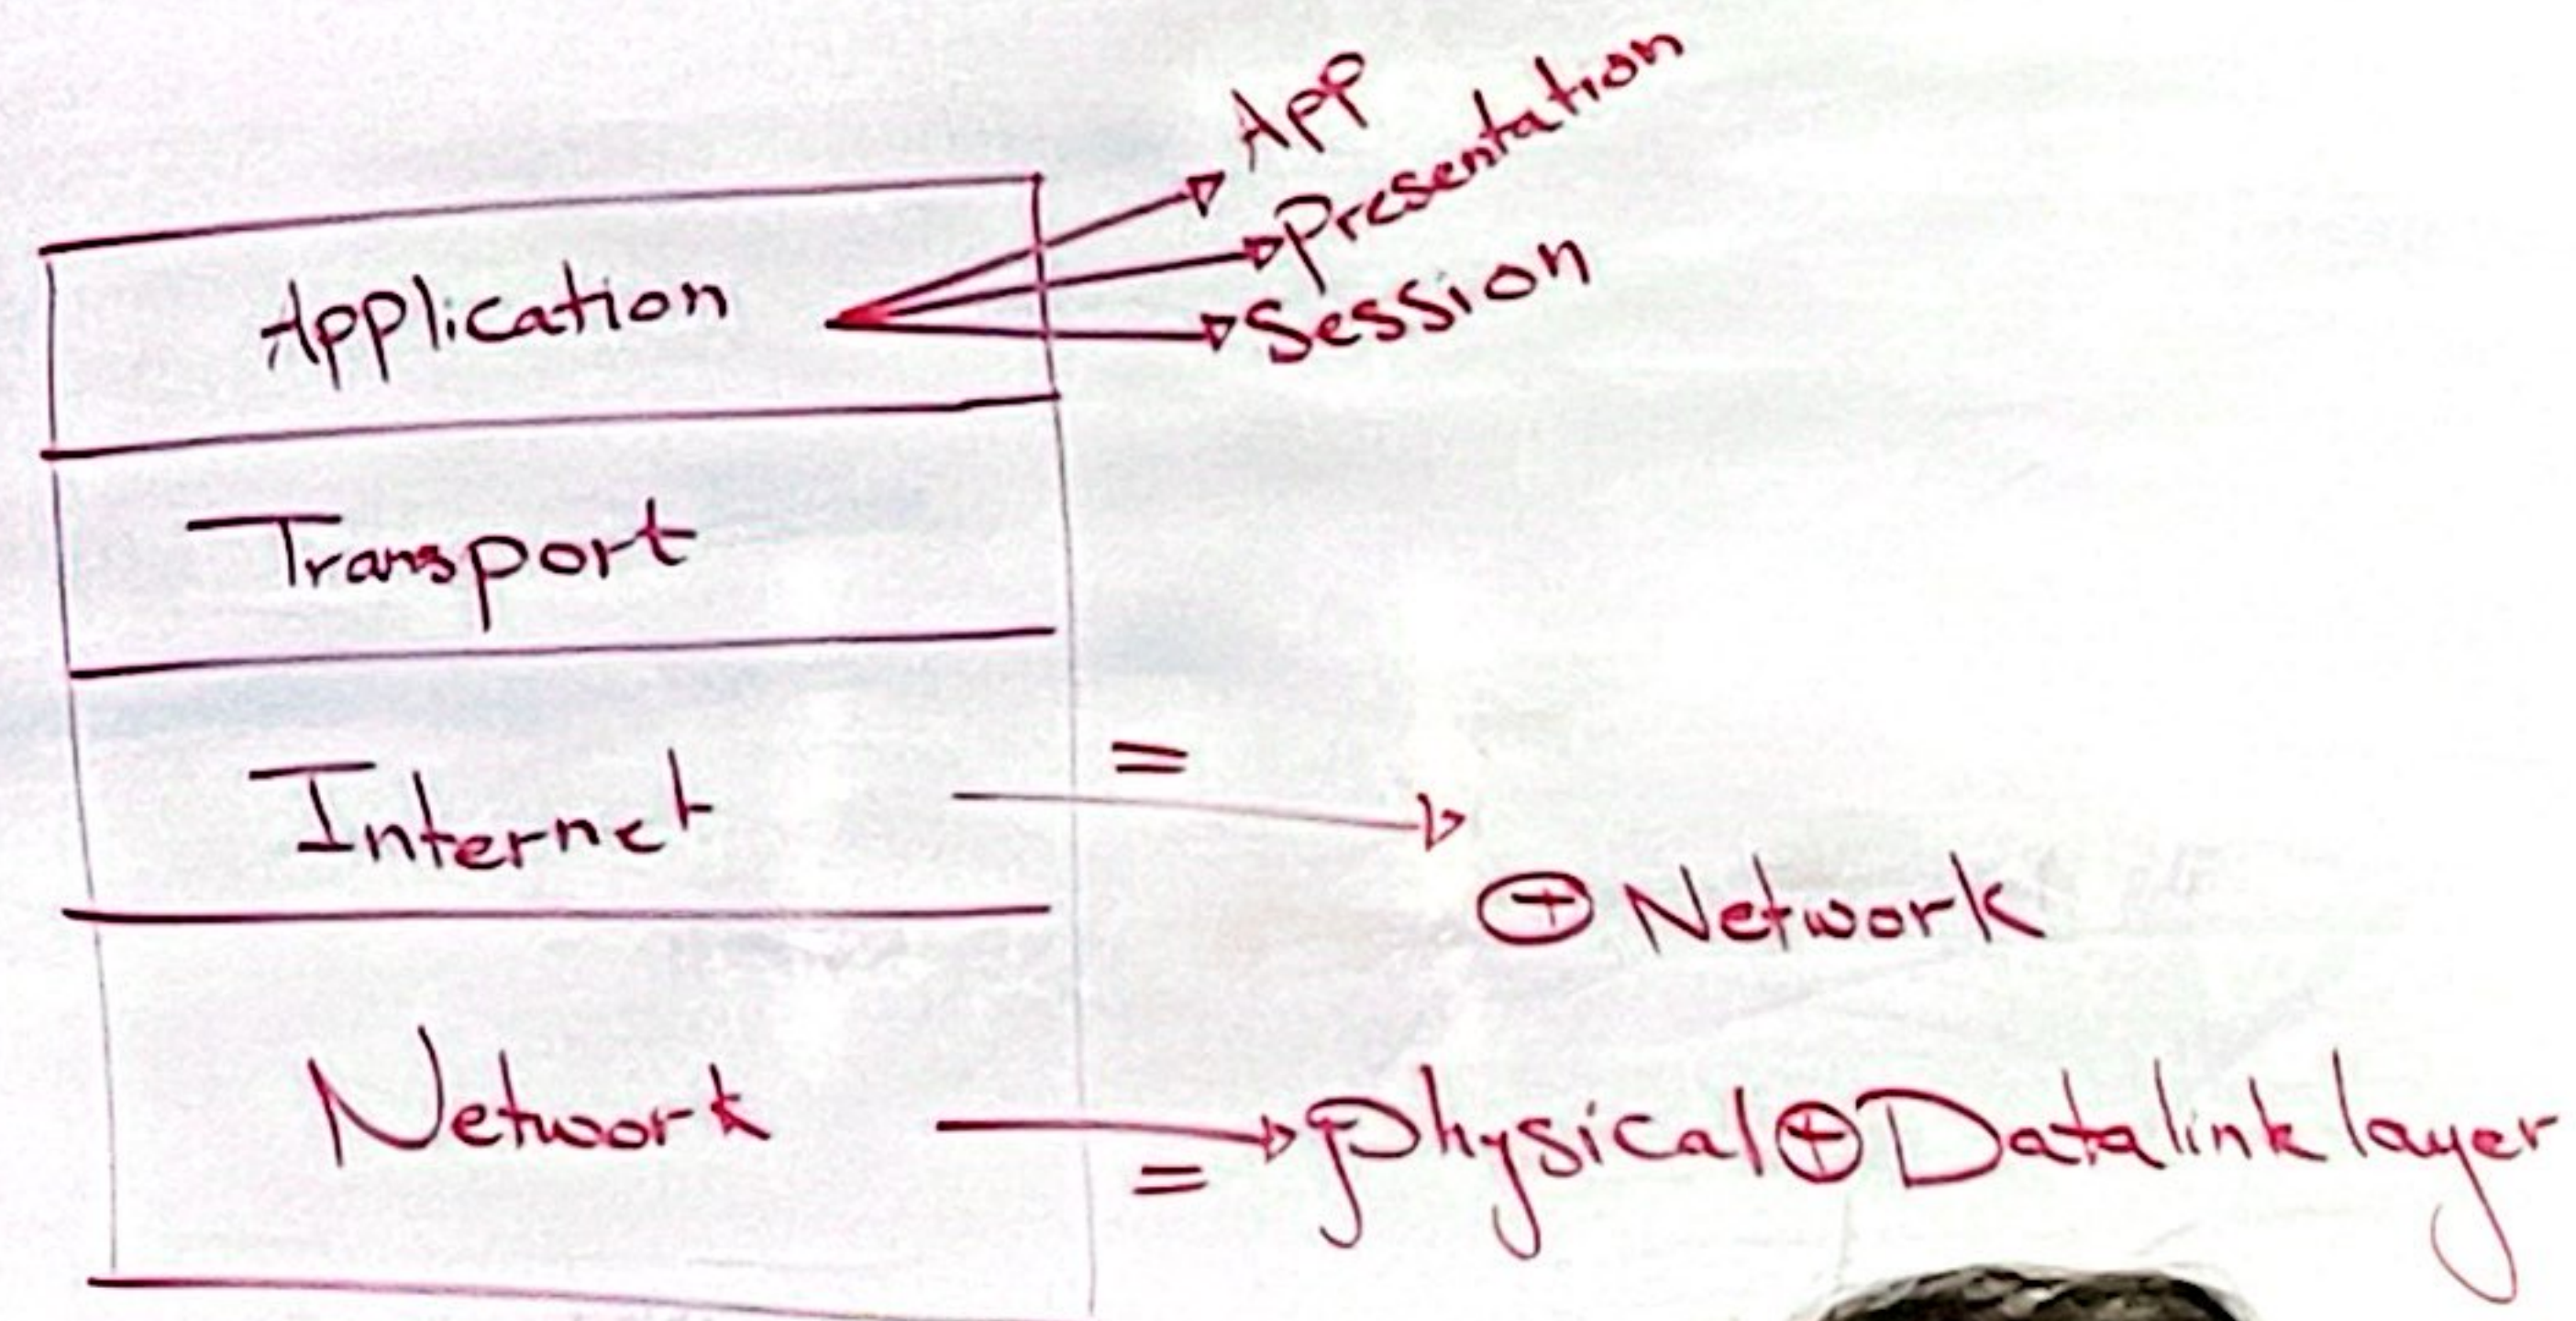 App
Presentation
Application
Session
Transport
=
Internet
⊕ Network
Network
= Physical ⊕ Datalink layer